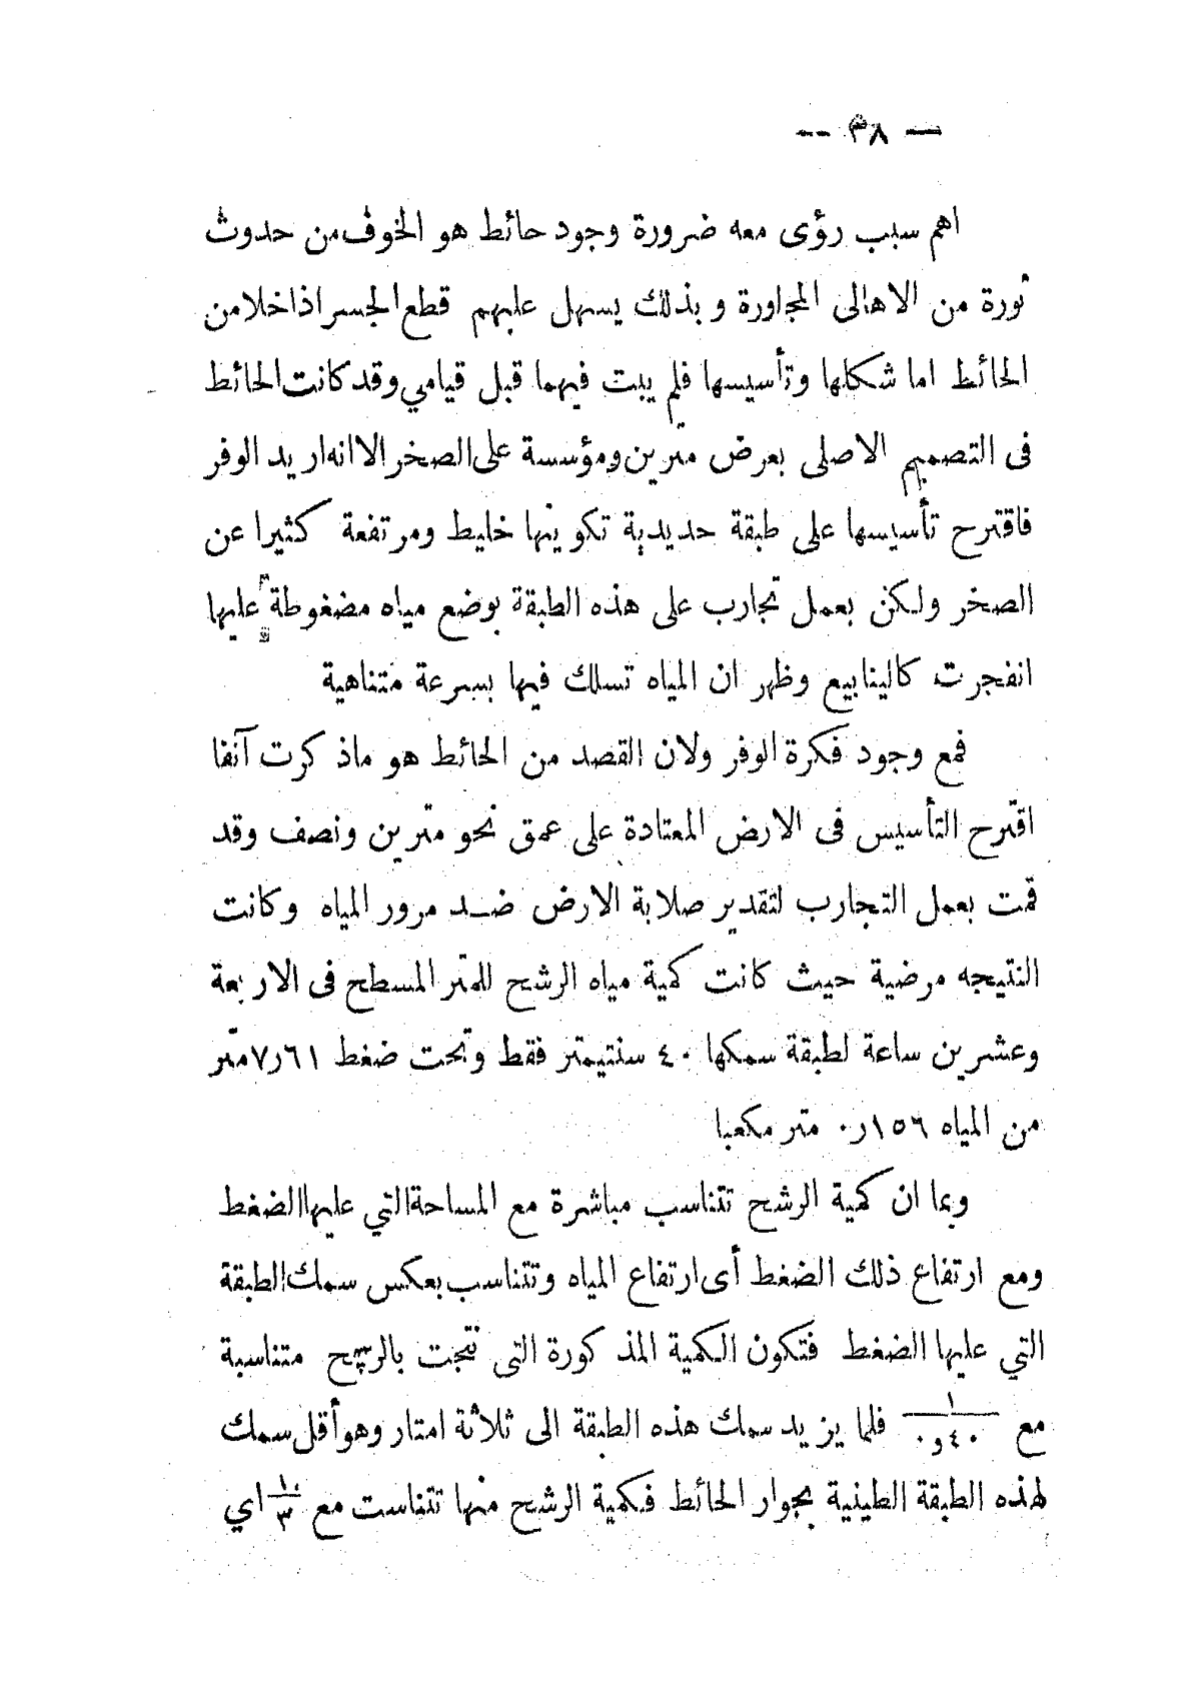 — ٣٨ —
اهم سبب رؤى معه ضرورة وجود حائط هو الخوف من حدوث
ثورة من الاهالى المجاورة وبذلك يسهل عليهم قطع الجسر اذا خلا من
الحائط اما شكلها وتأسيسها فلم يبت فيهما قبل قيامي وقد كانت الحائط
فى التصميم الاصلى بعرض مترين ومؤسسة على الصخر الا انه اريد الوفر
فاقترح تأسيسها على طبقة حديدية تكوينها خليط ومرتفعة كثيرا عن
الصخر ولكن بعمل تجارب على هذه الطبقة بوضع مياه مضغوطة عليها
انفجرت كالينابيع وظهر ان المياه تسلك فيها بسرعة متناهية
فمع وجود فكرة الوفر ولان القصد من الحائط هو ماذكرت آنفا
اقترح التأسيس فى الارض المعتادة على عمق نحو مترين ونصف وقد
قمت بعمل التجارب لتقدير صلابة الارض ضد مرور المياه وكانت
النتيجه مرضية حيث كانت كمية مياه الرشح للمتر المسطح فى الاربعة
وعشرين ساعة لطبقة سمكها ٤٠ سنتيمتر فقط وتحت ضغط ٧٫٦١ متر
من المياه ٠٫١٥٦ متر مكعبا
وبما ان كمية الرشح تتناسب مباشرة مع المساحة التي عليها الضغط
ومع ارتفاع ذلك الضغط أى ارتفاع المياه وتتناسب بعكس سمك الطبقة
التي عليها الضغط فتكون الكمية المذكورة التى نتجت بالرشح متناسبة
مع ١/٠٫٤٠ فلما يزيد سمك هذه الطبقة الى ثلاثة امتار وهو أقل سمك
لهذه الطبقة الطينية بجوار الحائط فكمية الرشح منها تتناست مع ١/٣ اي